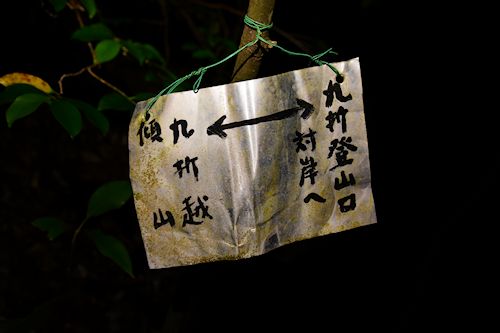 九折登山口
対岸へ
九折越
傾山